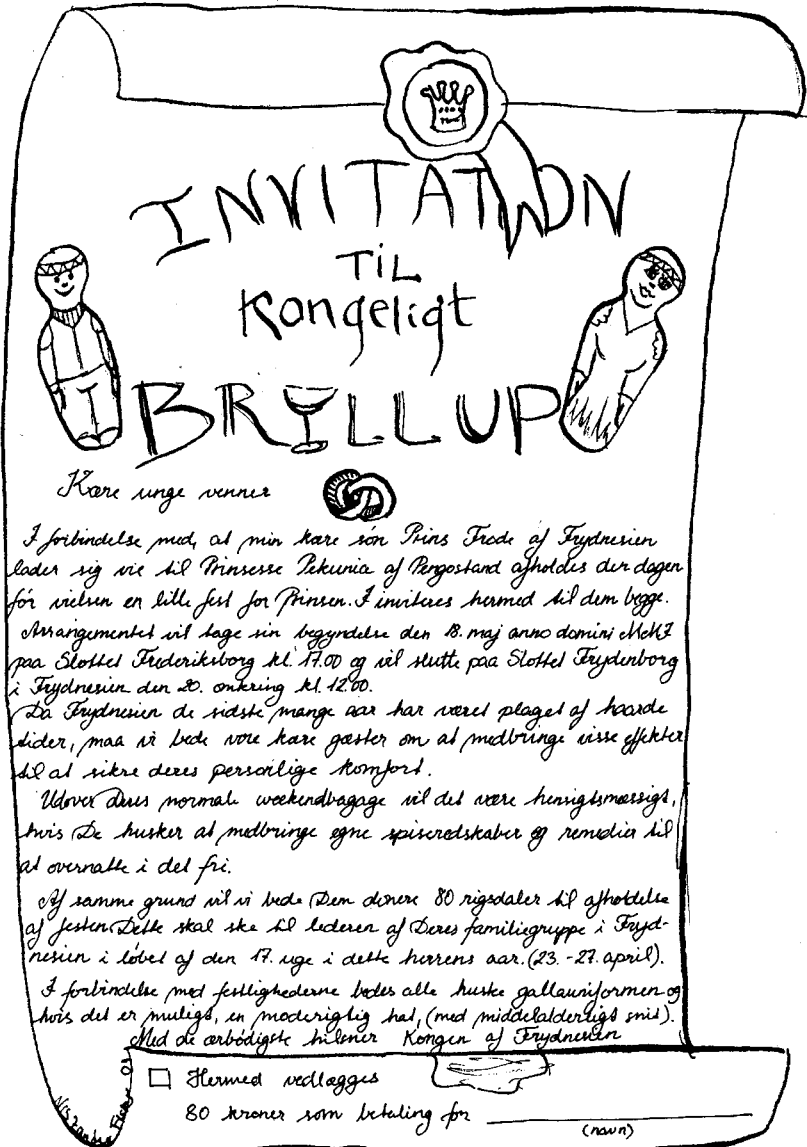 INVITATION
TiL
Kongeligt
BRYLLUP
Kære unge venner
I forbindelse med, at min kære søn Prins Frode af Frydnesien
lader sig vie til Prinsesse Pekunia af Pengostand afholdes der dagen
før vielsen en lille fest for Prinsen. I inviteres hermed til dem begge.
Arrangementet vil tage sin begyndelse den 18. maj anno domini
paa Slottet Frederiksborg kl. 17.00 og vil slutte paa Slottet Frydenborg
i Frydnesien den 20. omkring kl. 12.00.
Da Frydnesien de sidste mange aar har været plaget af haarde
tider, maa vi bede vore kære gæster om at medbringe visse effekter
til at sikre deres personlige komfort.
Udover Deres normale weekendbagage vil det være hensigtsmæssigt,
hvis De husker at medbringe egne spiseredskaber og remedier til
at overnatte i det fri.
Af samme grund vil vi bede Dem donere 80 rigsdaler til afholdelse
af festen. Dette skal ske til lederen af Deres familiegruppe i Fryd-
nesien i løbet af den 17. uge i dette herrens aar. (23.-27. april).
I forbindelse med festlighederne bedes alle huske gallauniformen og
hvis det er muligt, en moderigtig hat, (med middelalderligt snit).
Med de ærbødigste hilsner Kongen af Frydnesien
Hermed vedlægges
80 kroner som betaling for
(navn)